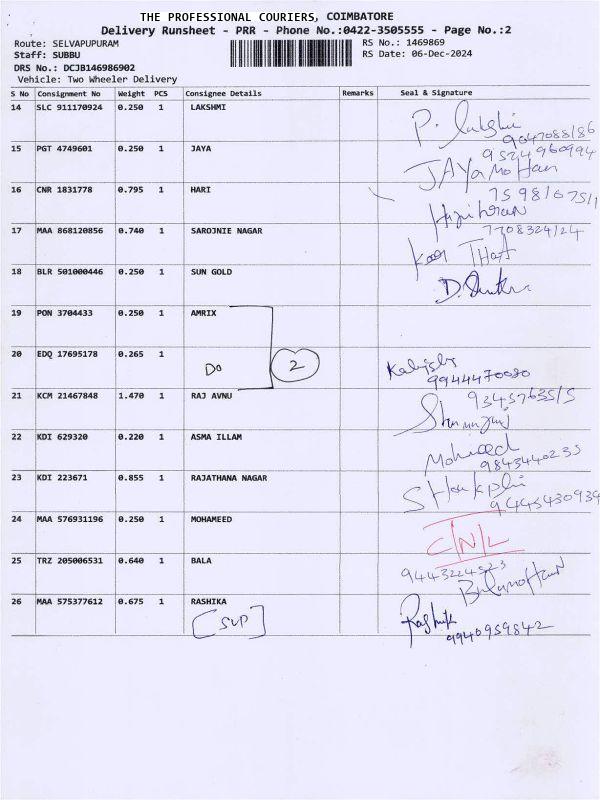 THE PROFESSIONAL COURIERS, COIMBATORE
Delivery Runsheet - PRR - Phone No.:0422-3505555 - Page No.:2
Route: SELVAPUPURAM
Staff: SUBBU
DRS No.: DCJB146986902
Vehicle: Two Wheeler Delivery
RS No.: 1469869
RS Date: 06-Dec-2024
S No Consignment No Weight PCS Consignee Details Remarks Seal & Signature
14 SLC 911170924 0.250 1 LAKSHMI P.
9047088186
15 PGT 4749601 0.250 1 JAYA 9524960994
JAYa MoHan
16 CNR 1831778 0.795 1 HARI
Hariharan
17 MAA 868120856 0.740 1 SAROJNIE NAGAR 7708324124
18 BLR 501000446 0.250 1 SUN GOLD D.
19 PON 3704433 0.250 1 AMRIX
20 EDQ 17695178 0.265 1 Do 2
9944470080
21 KCM 21467848 1.470 1 RAJ AVNU
22 KDI 629320 0.220 1 ASMA ILLAM
9843440235
23 KDI 223671 0.855 1 RAJATHANA NAGAR
24 MAA 576931196 0.250 1 MOHAMEED CNL
25 TRZ 205006531 0.640 1 BALA
26 MAA 575377612 0.675 1 RASHIKA Rashik
SLP 9940959842